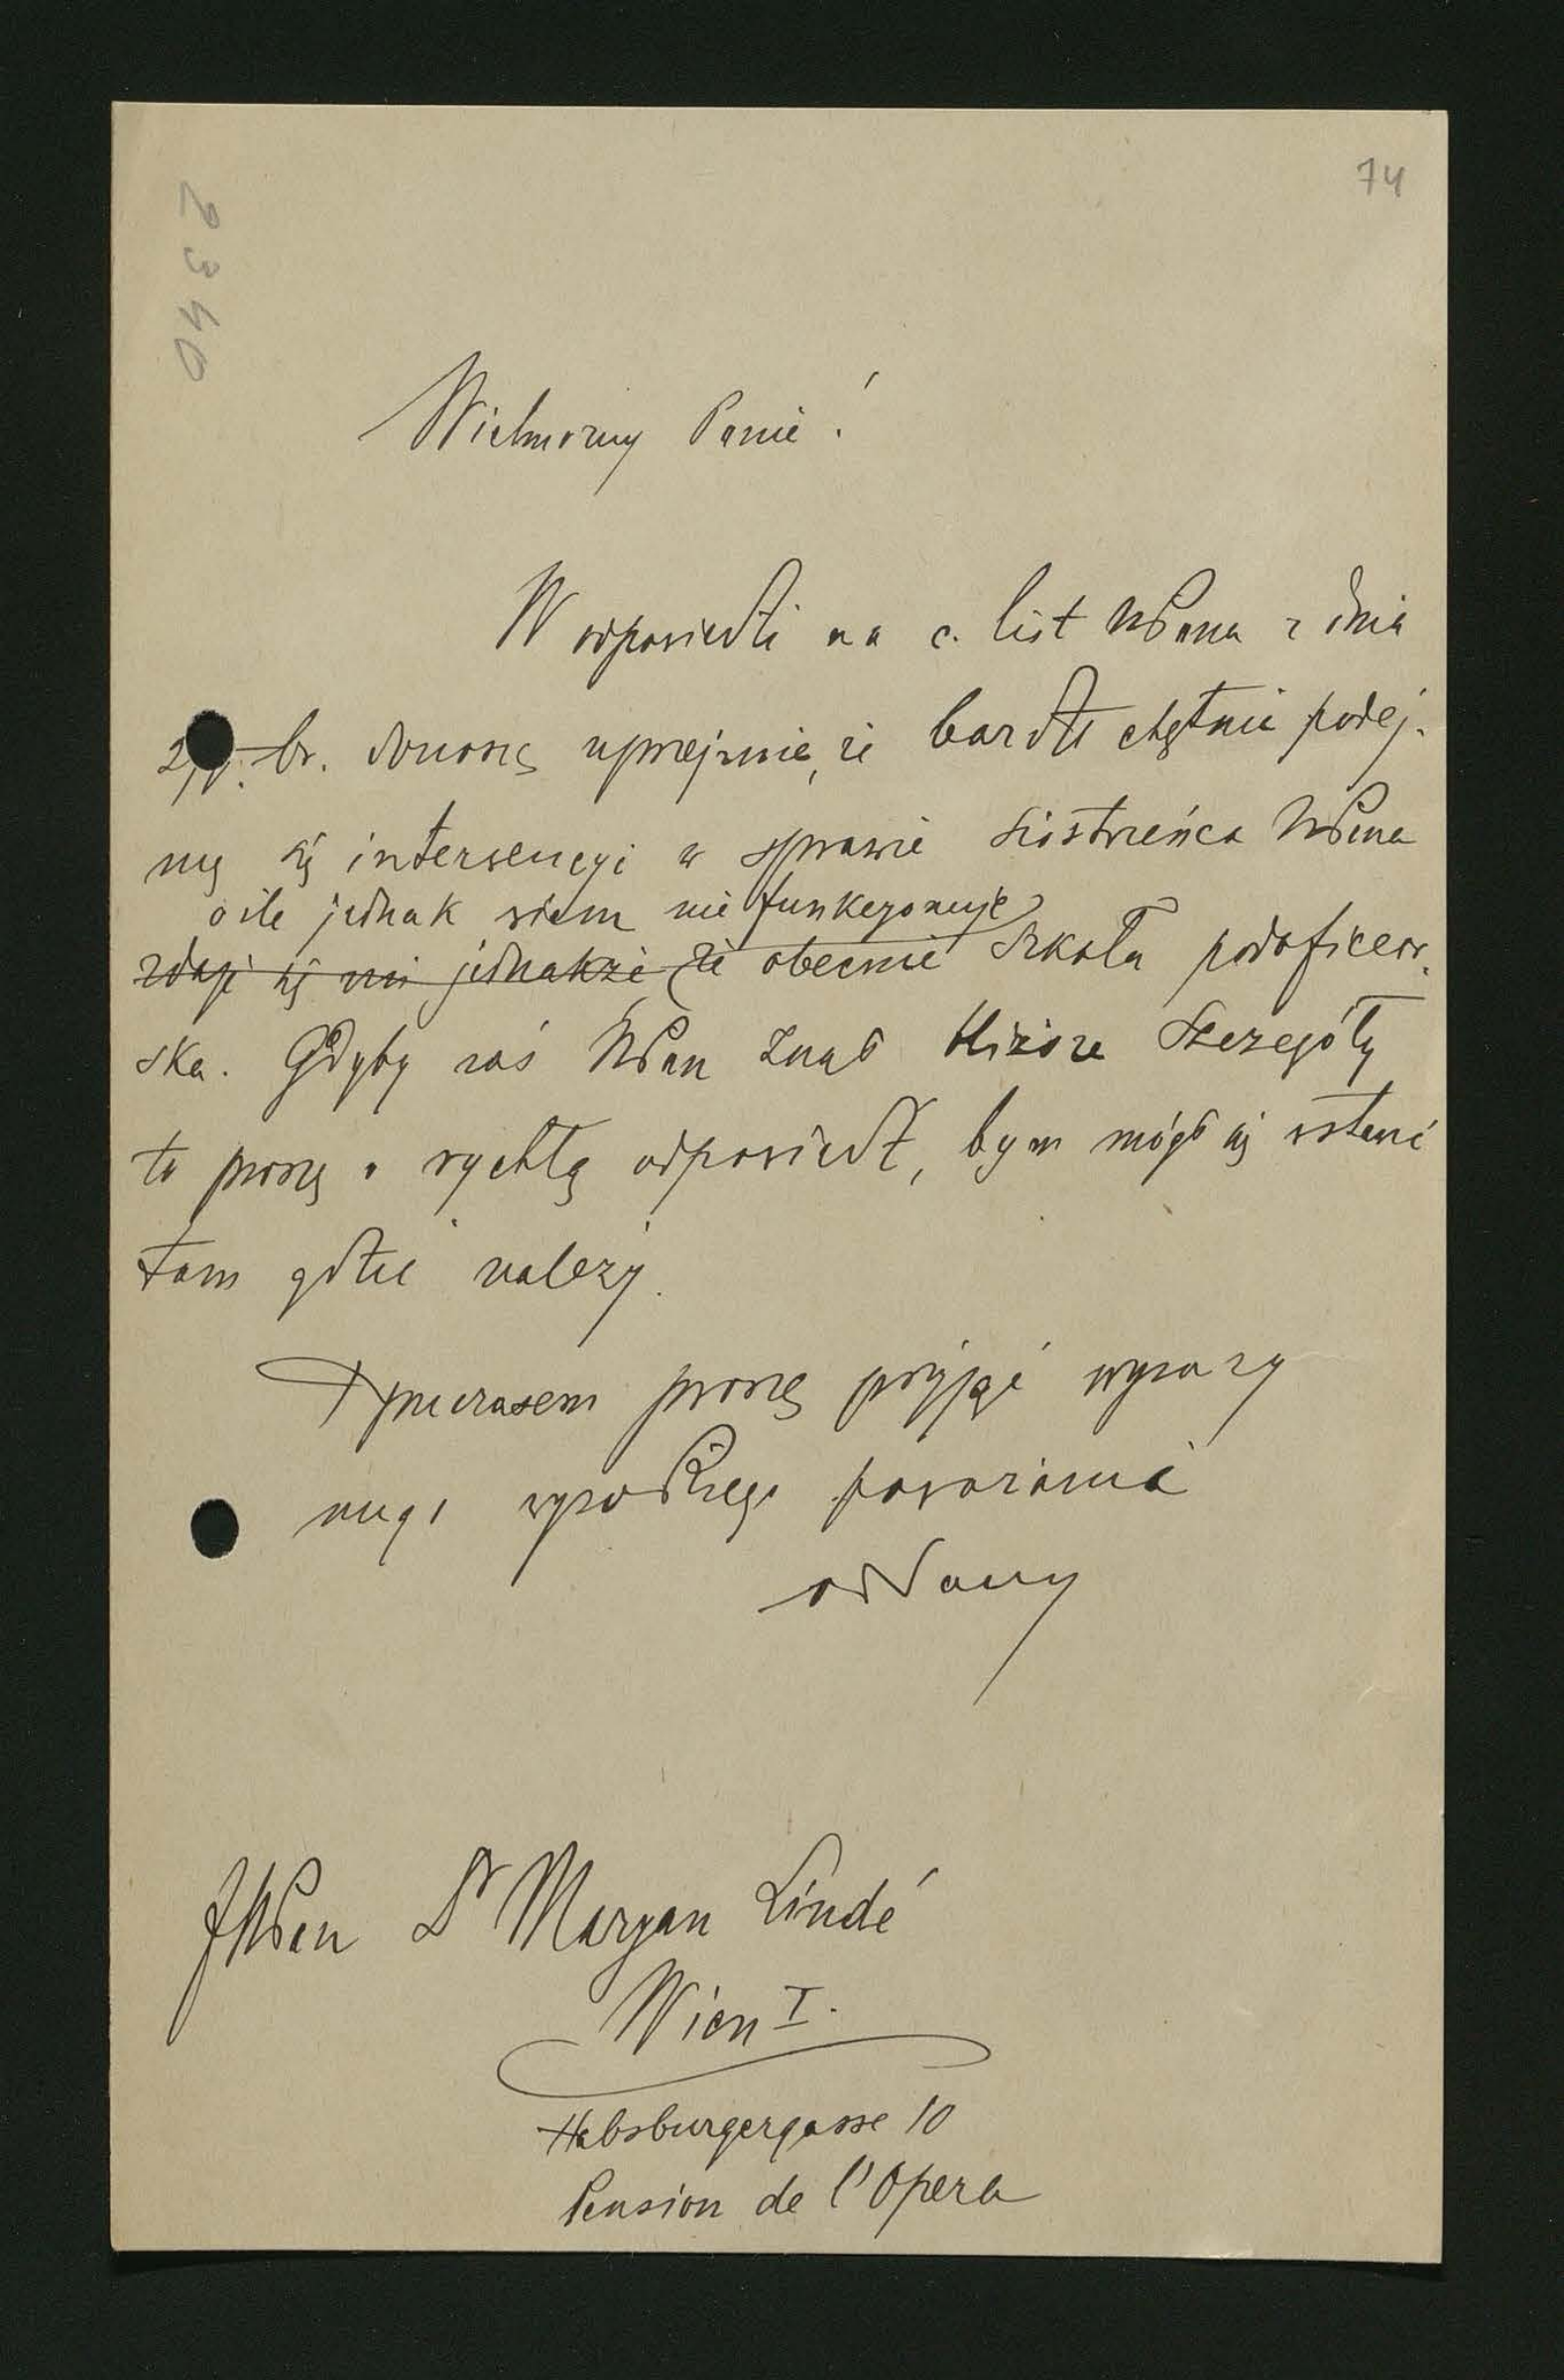 74
2340
Wielmożny Panie!
W odpowiedzi na c. list WPana z dnia
br. donoszę uprzejmie, że bardzo chętnie podej-
mę się interwencyi w sprawie siostrzeńca WPana
o ile jednak wiem nie funkcyonuje
zdaje się mi jednakże, że obecnie szkoła podoficer-
ska. Gdyby zaś WPan znał bliższe szczegóły
to proszę o rychłą odpowiedź, bym mógł się wstawić
tam gdzie należy.
Tymczasem proszę przyjąć wyrazy
mego wysokiego poważania
oddany
JWPan Dr Maryan Lindé
Wien I.
Habsburgergasse 10
Pension de l'Opera